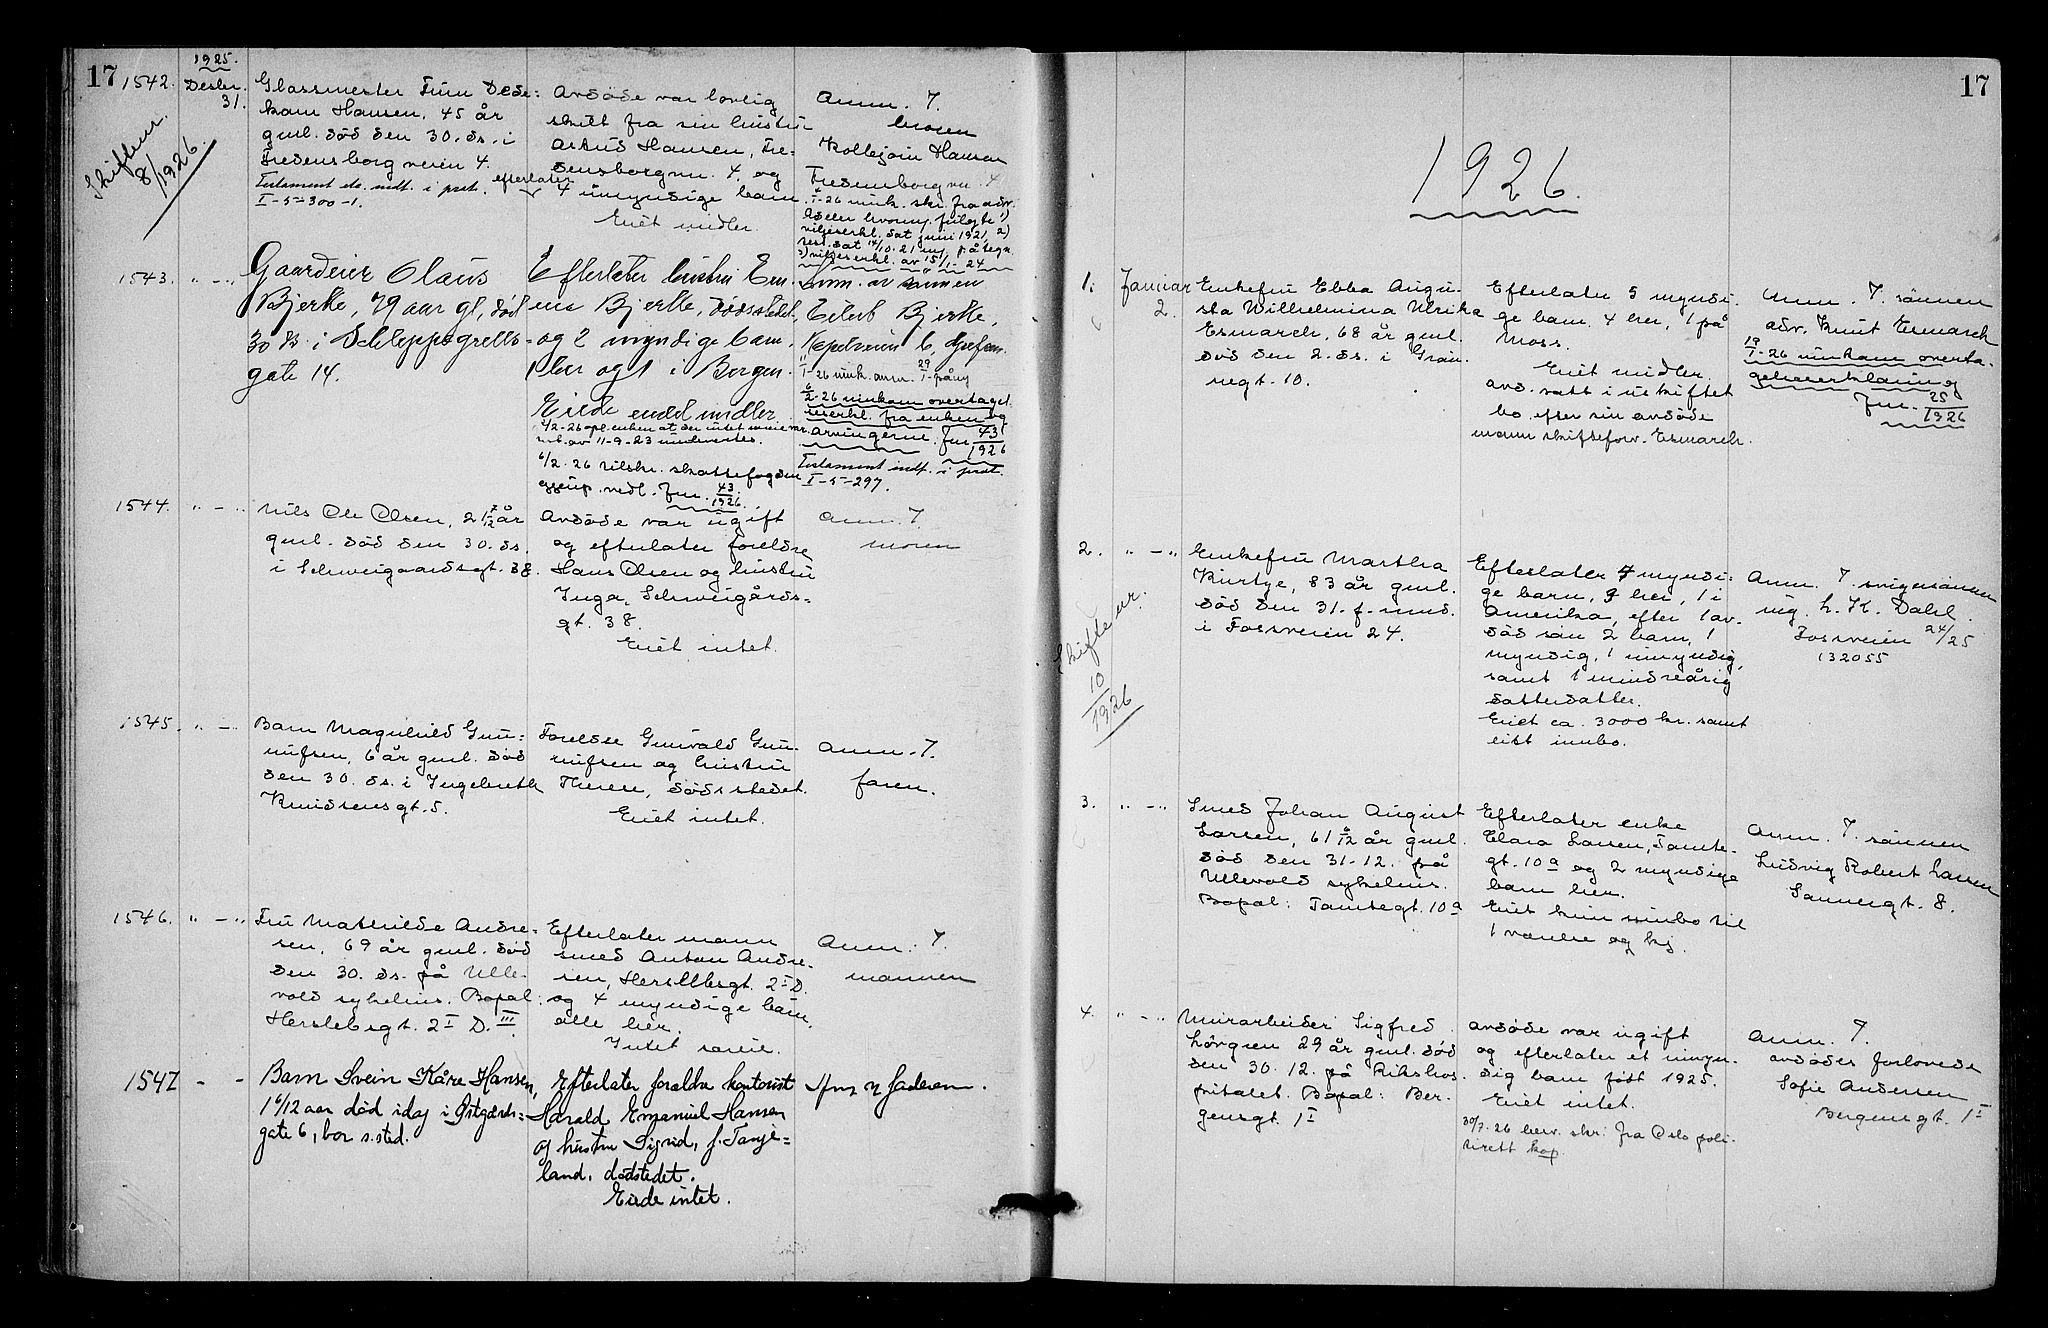 17
1542.
1925.
Desbr.
31.
Skifteur.
8/1926.
Glassmester Finn Dede=
kam Hansen, 45 år
gml. død den 30. ds. i
Fredensborgveien 4.
Testament etc. indt. i prot.
I-5-300-1.
Avdøde var lovlig
skilt fra sin hustru
Hansen, Fre=
densborgvn. 4. og
efterlater
4 umyndige barn
Eiet midler.
Anm. 7.
broren
Hansen
Fredensborgvn. 4
1543. " - "
Gaardeier Olaus
Bjerke, 79 aar gl, død
30 ds. i Schleppegrells=
gate 14.
Efterlater hustru Em-
ma Bjerke, dødsstedet,
og 2 myndige barn,
1 her og 1 i Bergen.
Eiede endel midler
6/2-26 opl. enken at
6/2. 26 tilskr. skattefogden
vedl. Jnr. 43/1926.
Anm. av sønnen
Eilert Bjerke,
6/2-26 innkom overtagel-
seserkl. fra enken og
arvingerne. Jnr 43/1926
Testament indt. i prot.
I-5-297.
1544. " - "
Nils Ole Olsen, 21 7/12 år
gml. død den 30. ds.
i Schweigaardsgt. 38.
Avdøde var ugift
og efterlater foreldre
Hans Olsen og hustru
Inga, Schweigårds=
gt. 38.
Eiet intet.
Anm. 7.
moren
1545. " - "
Barn Magnhild Gun=
nufsen, 6 år gml. død
den 30. ds. i Ingebreth
Knudsensgt. 5.
Foreldre Gunvald Gun-
nufsen og hustru
Therese, dødsstedet.
Eiet intet.
Anm. 7.
faren.
1546. " - "
Fru Mathilde Andre=
sen, 69 år gml. død
den 30. ds. på Ulle-
vold sykehus. Bopæl:
Herslebsgt. 2 I D. III
Efterlater mann
smed Anton Andre-
sen, Herslebsgt. 2 I D.
og 4 myndige barn,
alle her.
Intet særeie.
Anm. 7.
mannen
1547 - -
Barn Svein Kåre Hansen,
1 6/12 aar død idag i Østgaards=
gate 6, bor s.sted.
Efterlater forældre kontorist
Harald Emanuel Hansen
og hustru Sigrid, f. Tanje=
land, dødstedet.
Eiede intet.
Anm 7 faderen.
17
1926.
1.
Januar
2.
Enkefru Ebba Augu-
sta Wilhelmina Ulrika
Esmarch, 68 år gml.
død den 2. ds. i Grøn-
negt. 10.
Efterlater 5 myndi-
ge barn. 4 her, 1 på
Moss.
Eiet midler.
avd. satt i uskiftet
bo efter sin avdøde
mann skifteforv. Esmarch.
Anm. 7. sønnen
adv. Knut Esmarch
19/1-26 innkom overta-
gelseserklæring
Jnr. 25/1926
2. " - "
Skifteur.
10/1926
Enkefru Martha
Kurtye, 83 år gml.
død den 31. f. mnd.
i Fossveien 24.
Efterlater 4 myndi-
ge barn, 3 her, 1 i
Amerika, efter 1 av-
død søn 2 barn, 1
myndig, 1 umyndig,
samt 1 mindreårig
datterdatter.
Eiet ca. 3000 kr. samt
litt innbo.
Anm. 7. svigersønnen
ing. L. K. Dahl.
Fossveien 24/25
132055
3. " - "
Smed Johan August
Larsen, 61 8/12 år gml.
død den 31-12. på
Ullevold sykehus.
Bopæl: Tomtegt. 10 a
Efterlater enke
Clara Larsen, Tomte-
gt. 10 a og 2 myndige
barn her.
Eiet kun innbo til
1 værelse og kj.
Anm. 7. sønnen
Ludvig Robert Larsen
Sannergt. 8.
4. " - "
Murarbeider Sigfred
Lövgren 29 år gml. død
den 30. 12. på Rikshos-
pitalet. Bopæl: Ber-
gensgt. 1 I
Avdøde var ugift
og efterlater et umyn-
dig barn født 1925.
Eiet intet.
30/7. 26 besv. skr. fra Oslo poli-
tirett kop.
Anm. 7.
avdødes forlovede
Sofie Andersen
Bergensgt. 1 I